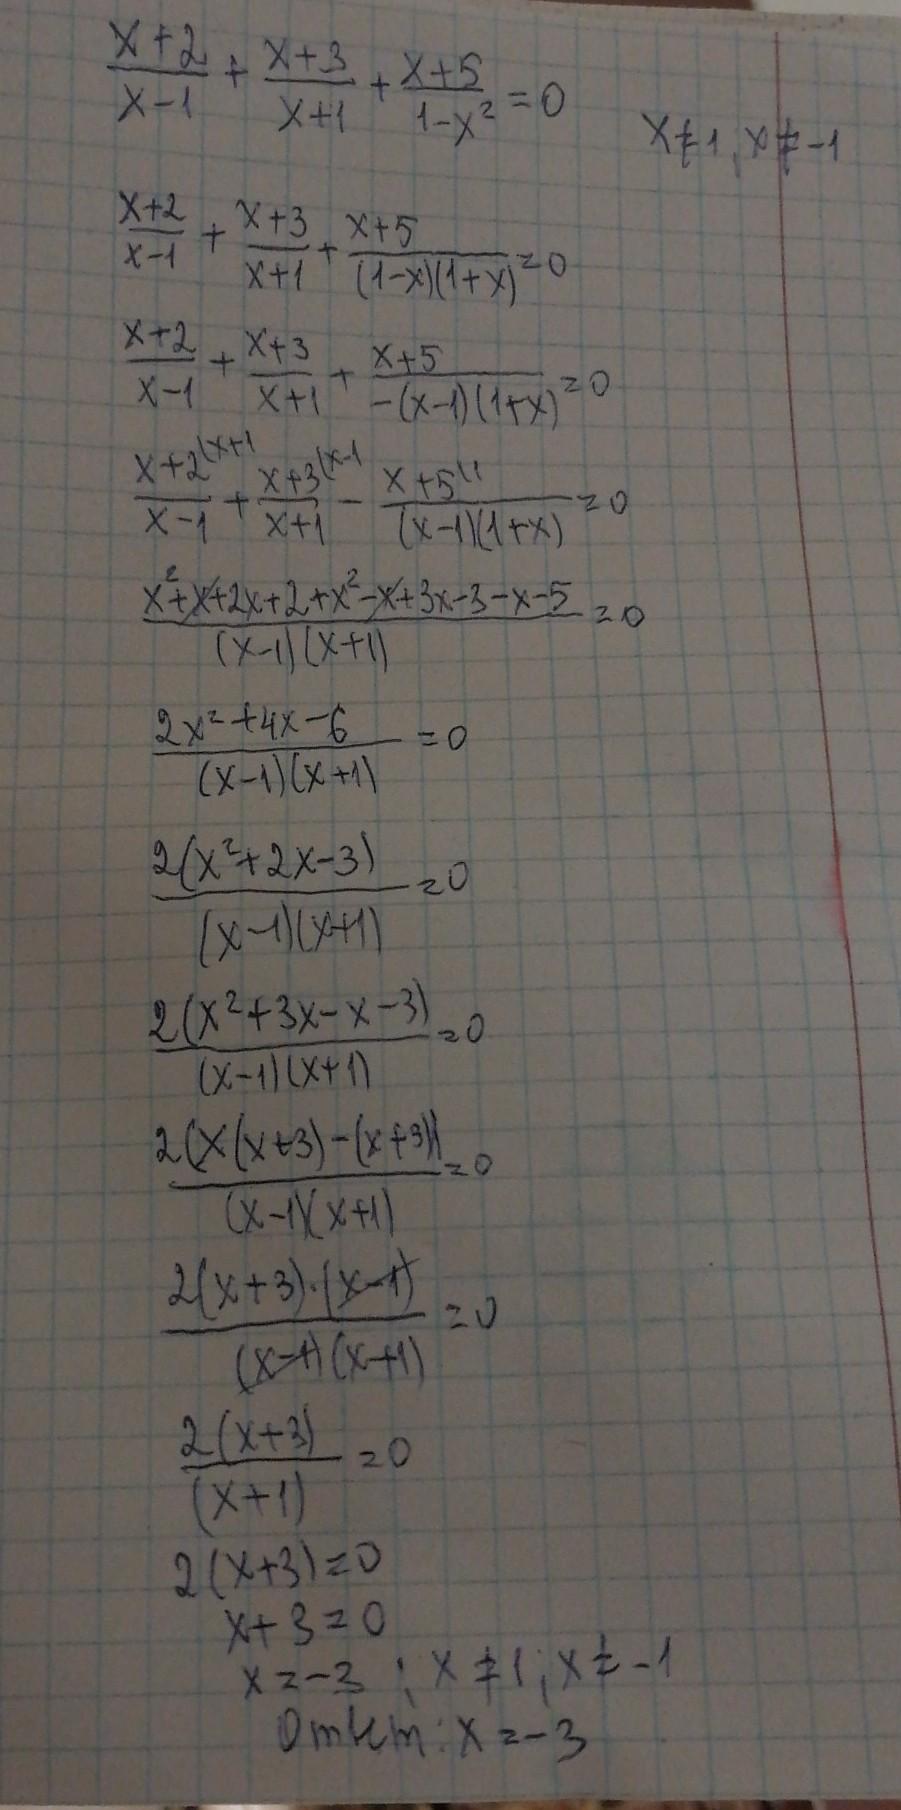 (x+2)/(x-1) + (x+3)/(x+1) + (x+5)/(1-x²) = 0
x≠1, x≠-1
(x+2)/(x-1) + (x+3)/(x+1) + (x+5)/((1-x)(1+x)) = 0
(x+2)/(x-1) + (x+3)/(x+1) + (x+5)/(-(x-1)(1+x)) = 0
(x+2)/(x-1) (x+1 + (x+3)/(x+1) (x-1 - (x+5)/((x-1)(1+x)) (1 = 0
(x²+x+2x+2+x²-x+3x-3-x-5)/((x-1)(x+1)) = 0
(2x²+4x-6)/((x-1)(x+1)) = 0
2(x²+2x-3)/((x-1)(x+1)) = 0
2(x²+3x-x-3)/((x-1)(x+1)) = 0
2(x(x+3)-(x+3))/((x-1)(x+1)) = 0
2(x+3)·(x-1)/((x-1)(x+1)) = 0
2(x+3)/(x+1) = 0
2(x+3)=0
x+3=0
x=-3 ; x≠1; x≠-1
Ответ: x=-3